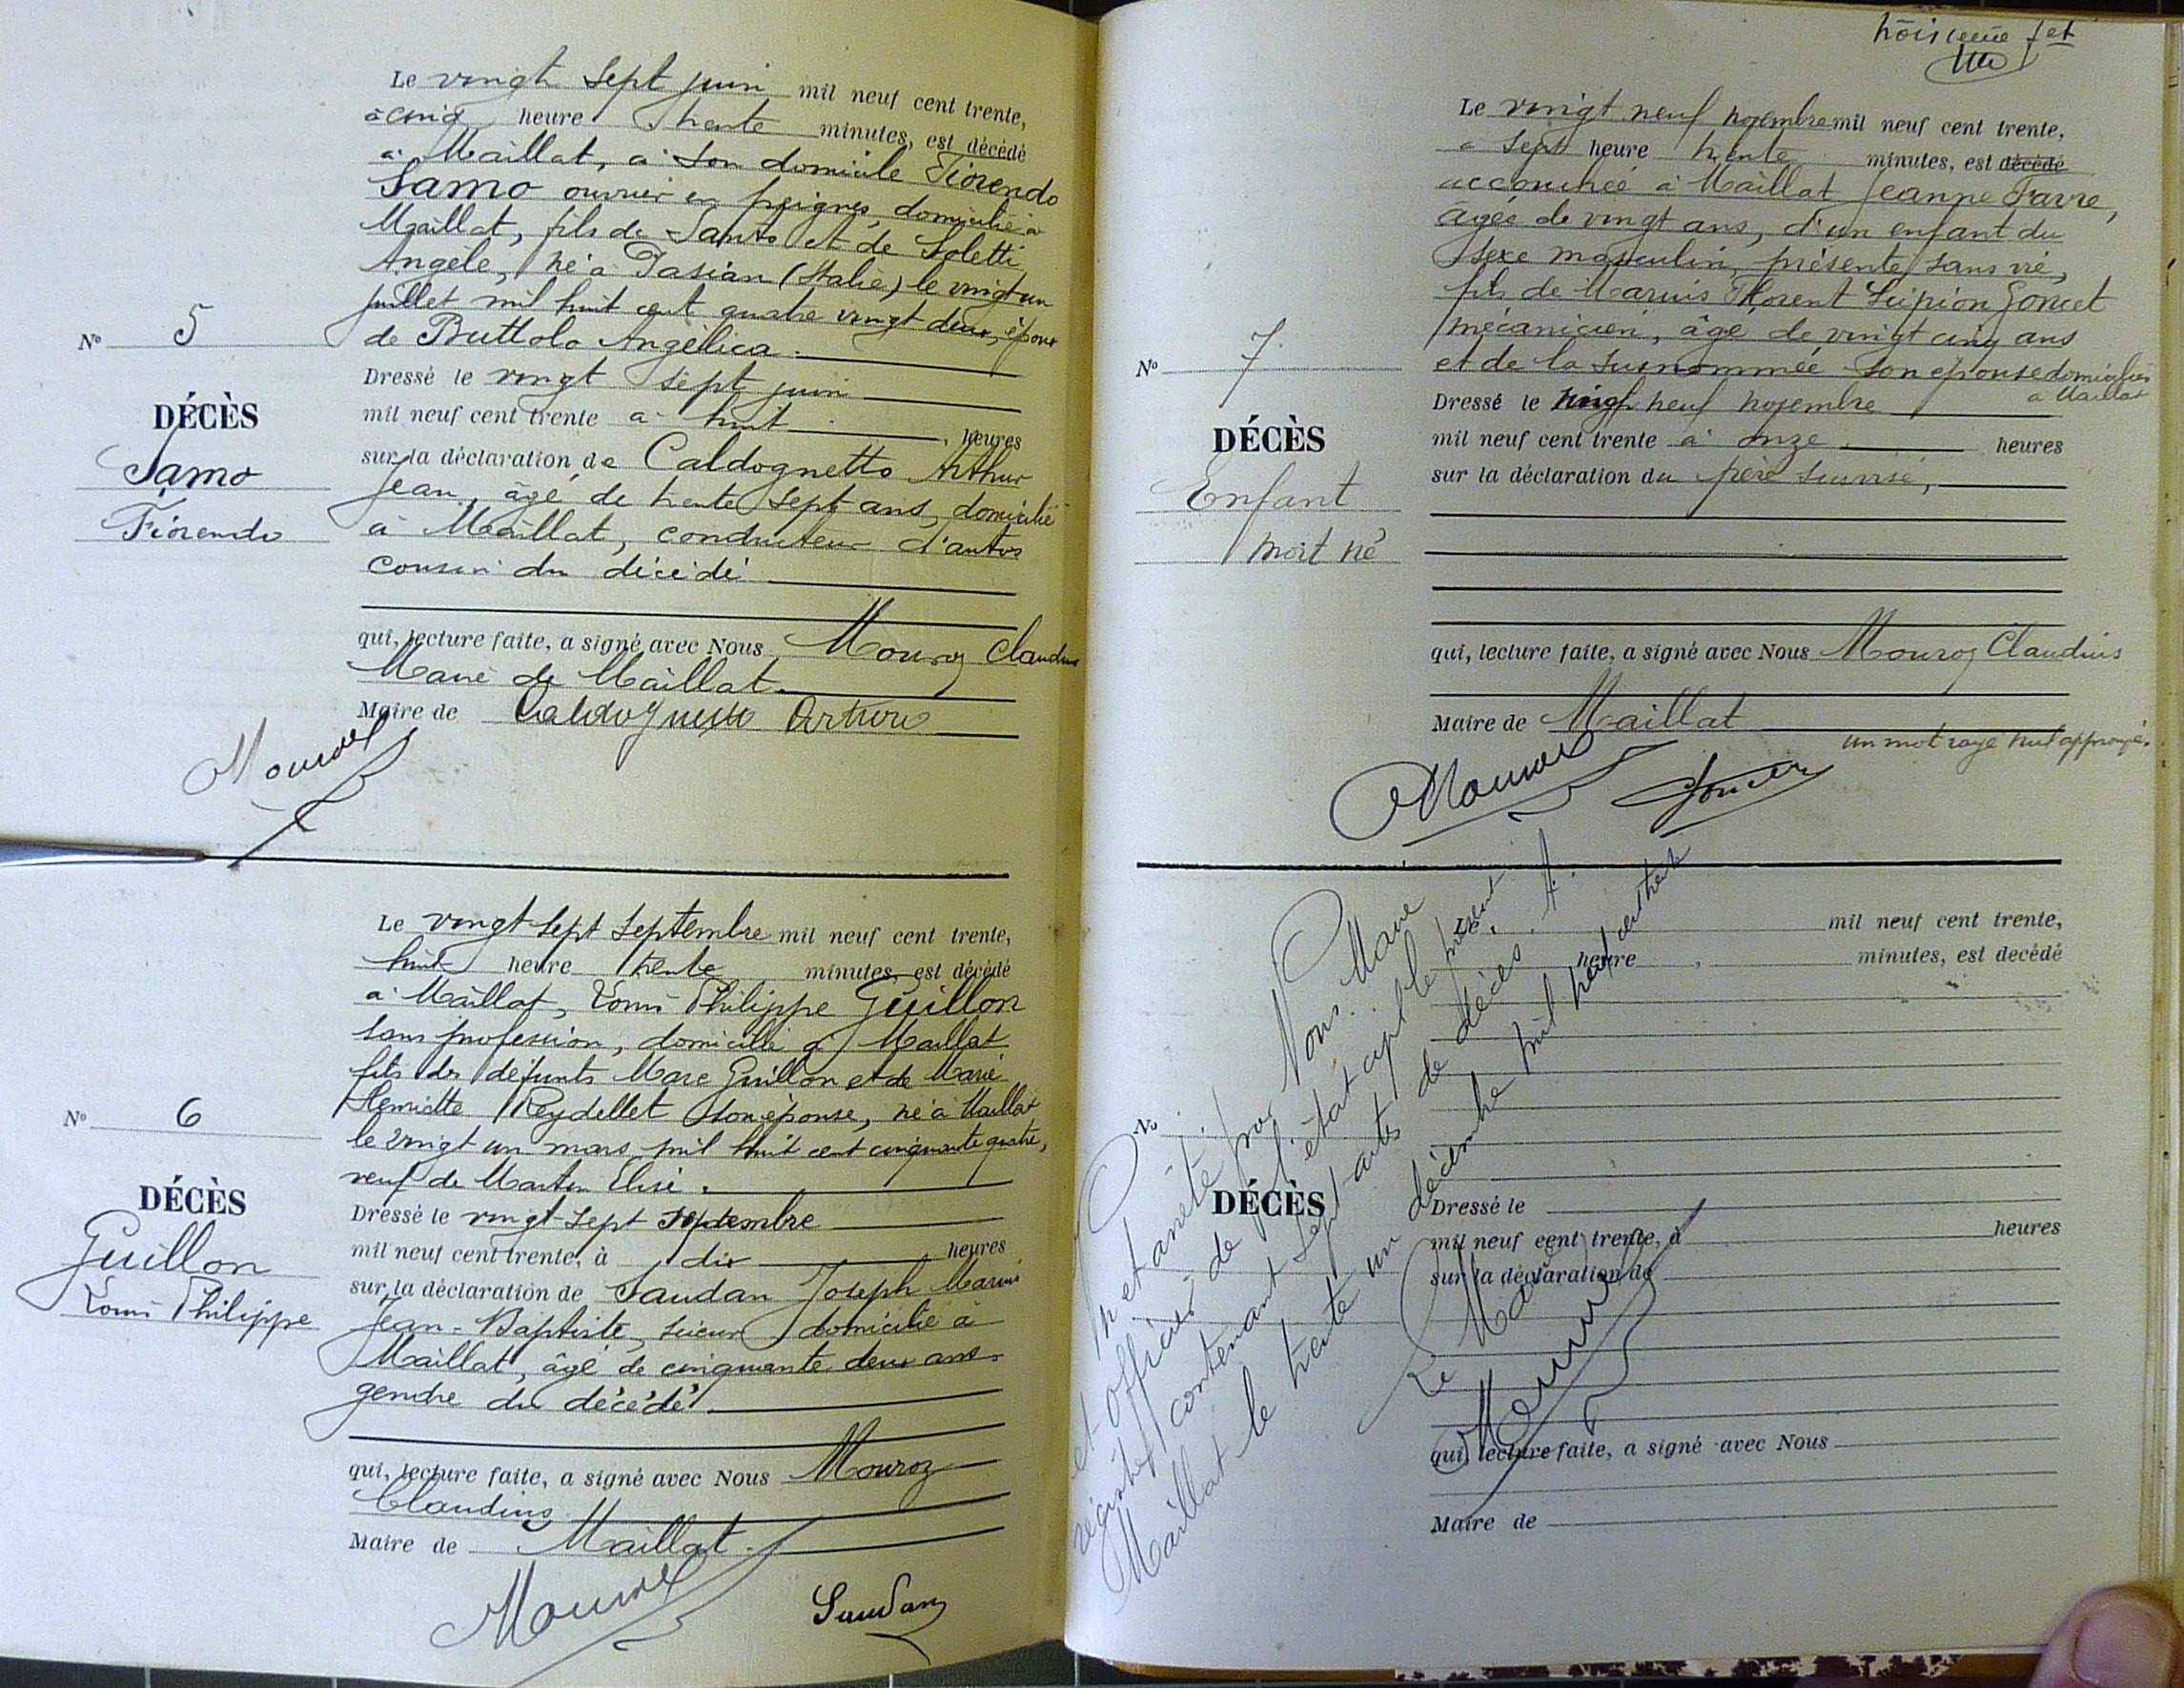 Le vingt sept juin mil neuf cent trente,
à cinq heure trente minutes, est décédé
à Maillat, à son domicile Fiorendo
Samo ouvrier en peignes, domicilié à
Maillat, fils de Santo et de Soletti
Angèle, né à Pasian (Italie) le vingt un
juillet mil huit cent quatre vingt deux, époux
de Buttolo Angélica.
Dressé le vingt sept juin
mil neuf cent trente à huit heures
sur la déclaration de Caldognetto Arthur
Jean, âgé de trente sept ans, domicilié
à Maillat, conducteur d'autos
cousin du décédé
qui, lecture faite, a signé avec Nous Mouroz Claudius
Maire de Maillat.
Maire de Caldognetto Arturo
Mouroz
N° 5
DÉCÈS
Samo
Fiorendo
Le vingt sept septembre mil neuf cent trente,
huit heure trente minutes, est décédé
à Maillat, Louis Philippe Guillon
sans profession, domicilié à Maillat
fils des défunts Marc Guillon et de Marie
Henriette Reydellet son épouse, né à Maillat
le vingt un mars mil huit cent cinquante quatre,
veuf de Martin Elise.
Dressé le vingt-sept septembre
mil neuf cent trente, à dix heures
sur la déclaration de Saudan Joseph Marius
Jean-Baptiste, scieur domicilié à
Maillat, âgé de cinquante deux ans
gendre du décédé.
qui, lecture faite, a signé avec Nous Mouroz
Claudius
Maire de Maillat.
Mouroz Saudan
N° 6
DÉCÈS
Guillon
Louis Philippe
troisième fet
Le vingt neuf novembre mil neuf cent trente,
à sept heure trente minutes, est décédé
accouchée à Maillat Jeanne Favre,
âgée de vingt ans, d'un enfant du
sexe masculin, présenté sans vie,
fils de Marius Florent Scipion Goncet
mécanicien, âgé de vingt cinq ans
et de la susnommée son épouse domiciliés
à Maillat
Dressé le vingt neuf novembre
mil neuf cent trente à onze heures
sur la déclaration du père susvisé,
qui, lecture faite, a signé avec Nous Mouroz Claudius
Maire de Maillat
un mot rayé nul approuvé.
Mouroz Goncet
N° 7
DÉCÈS
Enfant
mort né
Le mil neuf cent trente,
heure minutes, est decédé
N°
DÉCÈS
Dressé le
mil neuf cent trente, à heures
sur la déclaration de
qui, lecture faite, a signé avec Nous
Maire de
et arrêté par Nous Maire
et officier de l'état civil le présent
registre contenant sept actes de décès. A
Maillat le trente un décembre mil neuf cent trente
Le Maire
Mouroz